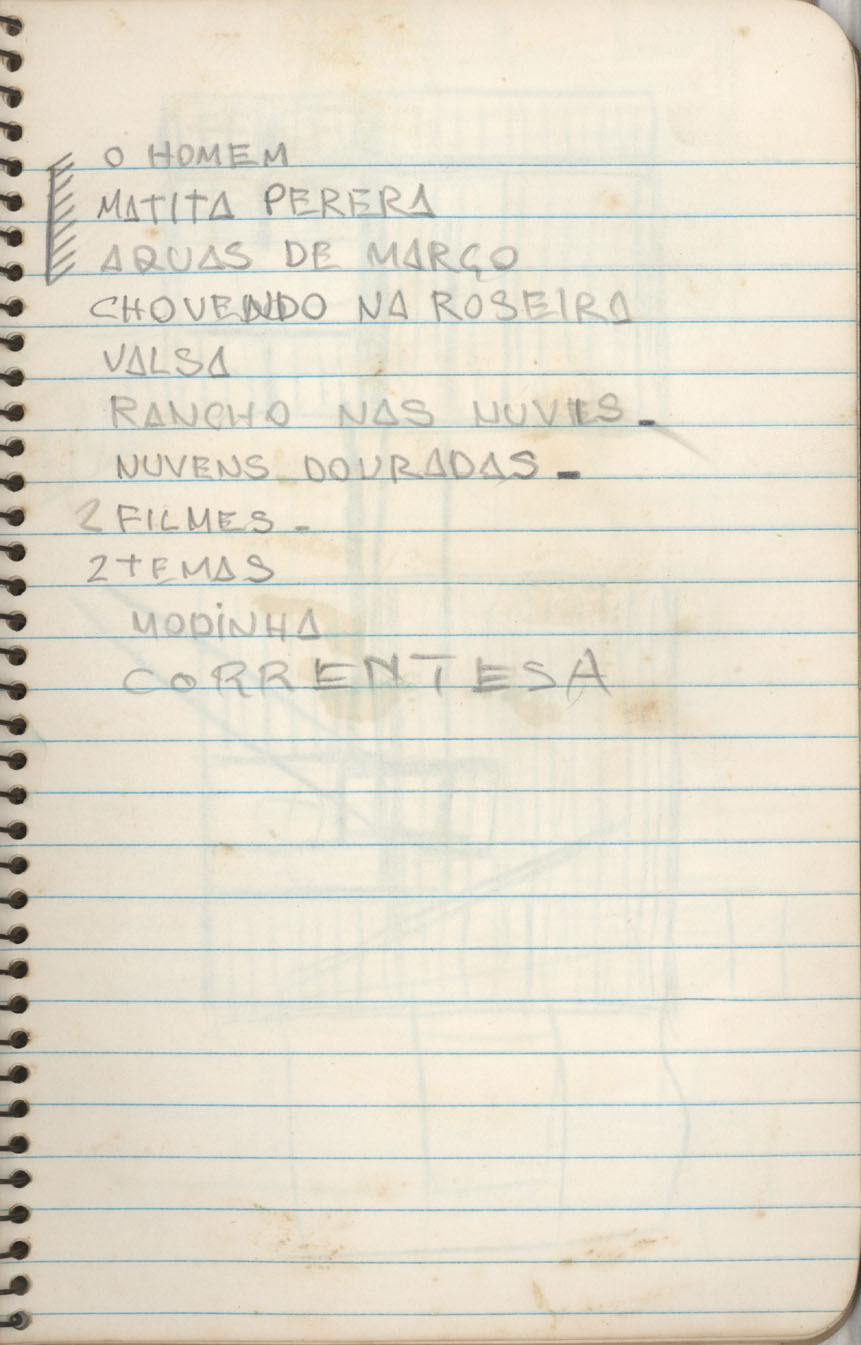 O HOMEM
MATITA PERERA
AQUAS DE MARÇO
CHOVENDO NA ROSEIRA
VALSA
RANCHO NAS NUVES -
NUVENS DOURADAS -
2 FILMES -
2 TEMAS
MODINHA
CORRENTESA